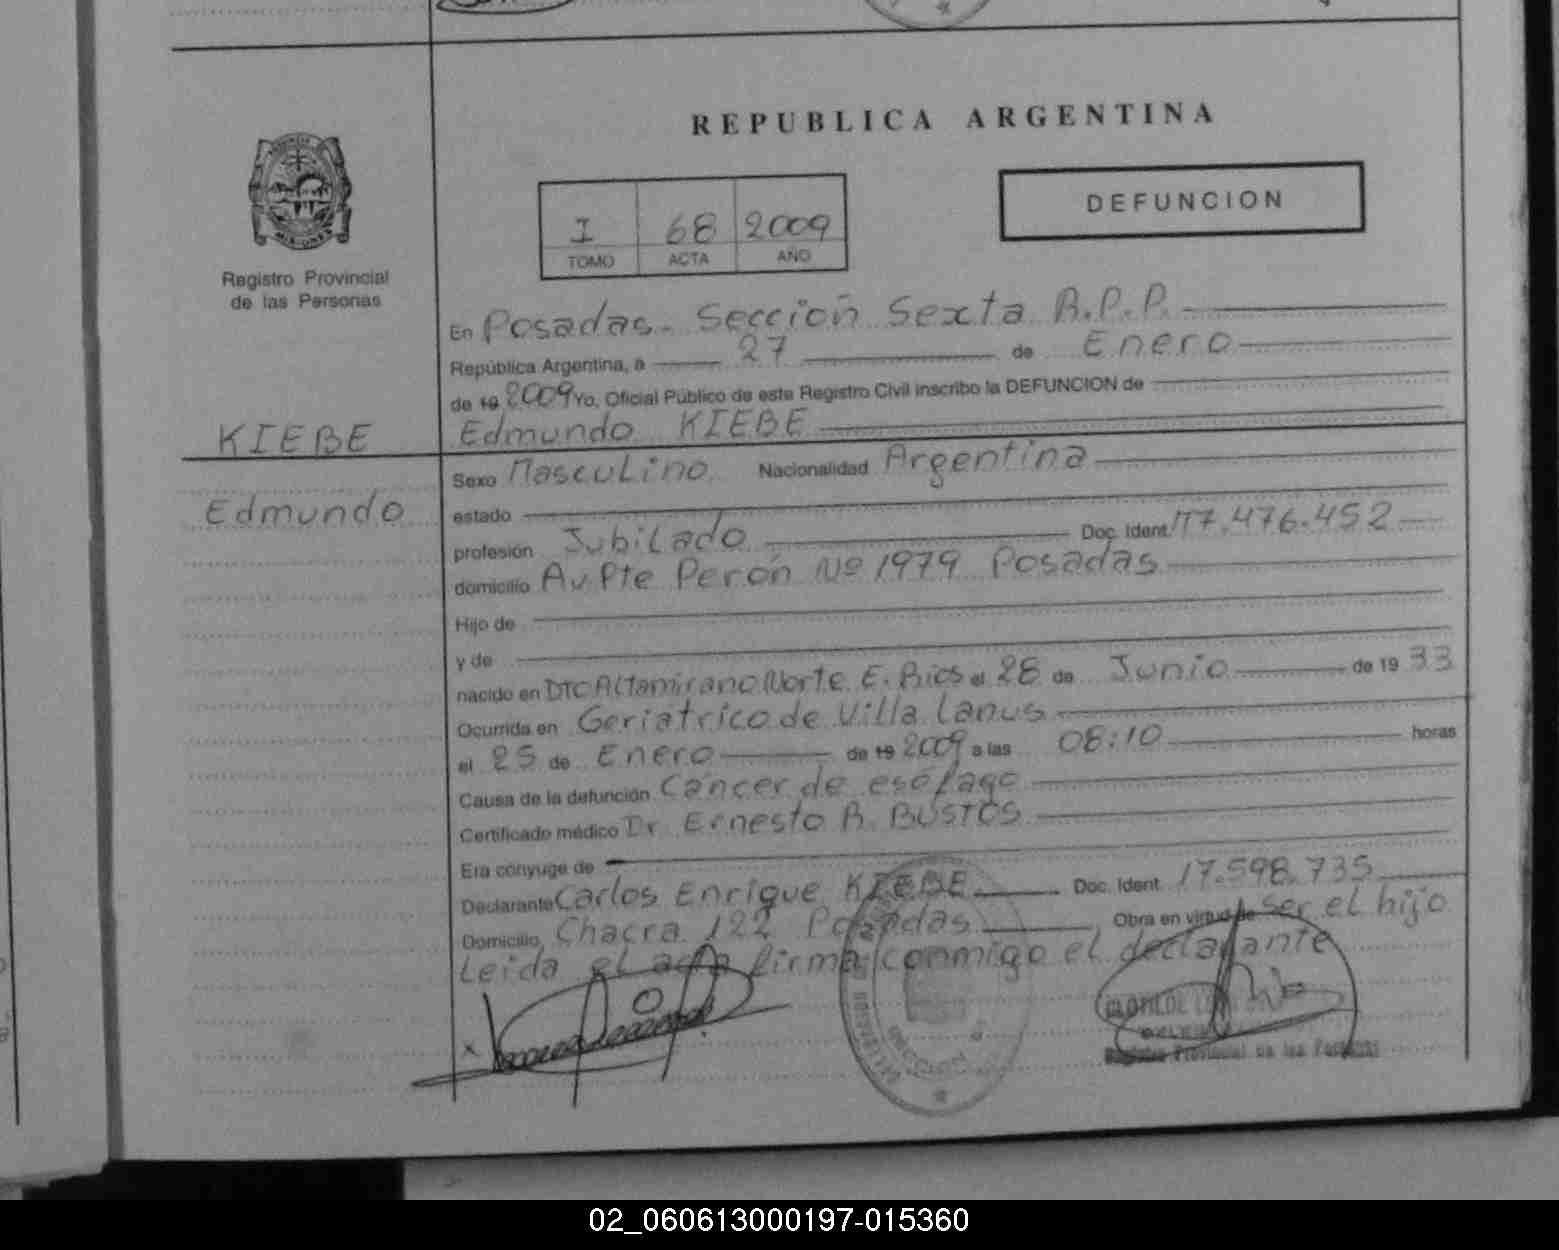 REPUBLICA ARGENTINA
DEFUNCION
I 68 2009
TOMO ACTA AÑO
MISIONES
Registro Provincial
de las Personas
En Posadas - Sección Sexta R.P.P.
República Argentina, a 27 de Enero
de 19 2009 Yo, Oficial Público de este Registro Civil inscribo la DEFUNCION de
KIEBE
Edmundo KIEBE
Sexo Masculino Nacionalidad Argentina
Edmundo
estado
profesión Jubilado Doc. Ident. M7.476.452
domicilio Av Pte Perón Nº 1979 Posadas
Hijo de
y de
nacido en DTO Altamirano Norte E. Rios el 28 de Junio de 19 33
Ocurrida en Geriatrico de Villa Lanus
el 25 de Enero de 19 2009 a las 08:10 horas
Causa de la defunción Cáncer de esófago
Certificado médico Dr. Ernesto R. BUSTOS
Era cónyuge de
Declarante Carlos Enrique KIEBE Doc. Ident. 17.598.735
Domicilio Chacra 122 Posadas Obra en virtud de ser el hijo
Leida el acta firma conmigo el declarante
x
CLOTILDE
Registro Provincial de las Personas
02_060613000197-015360